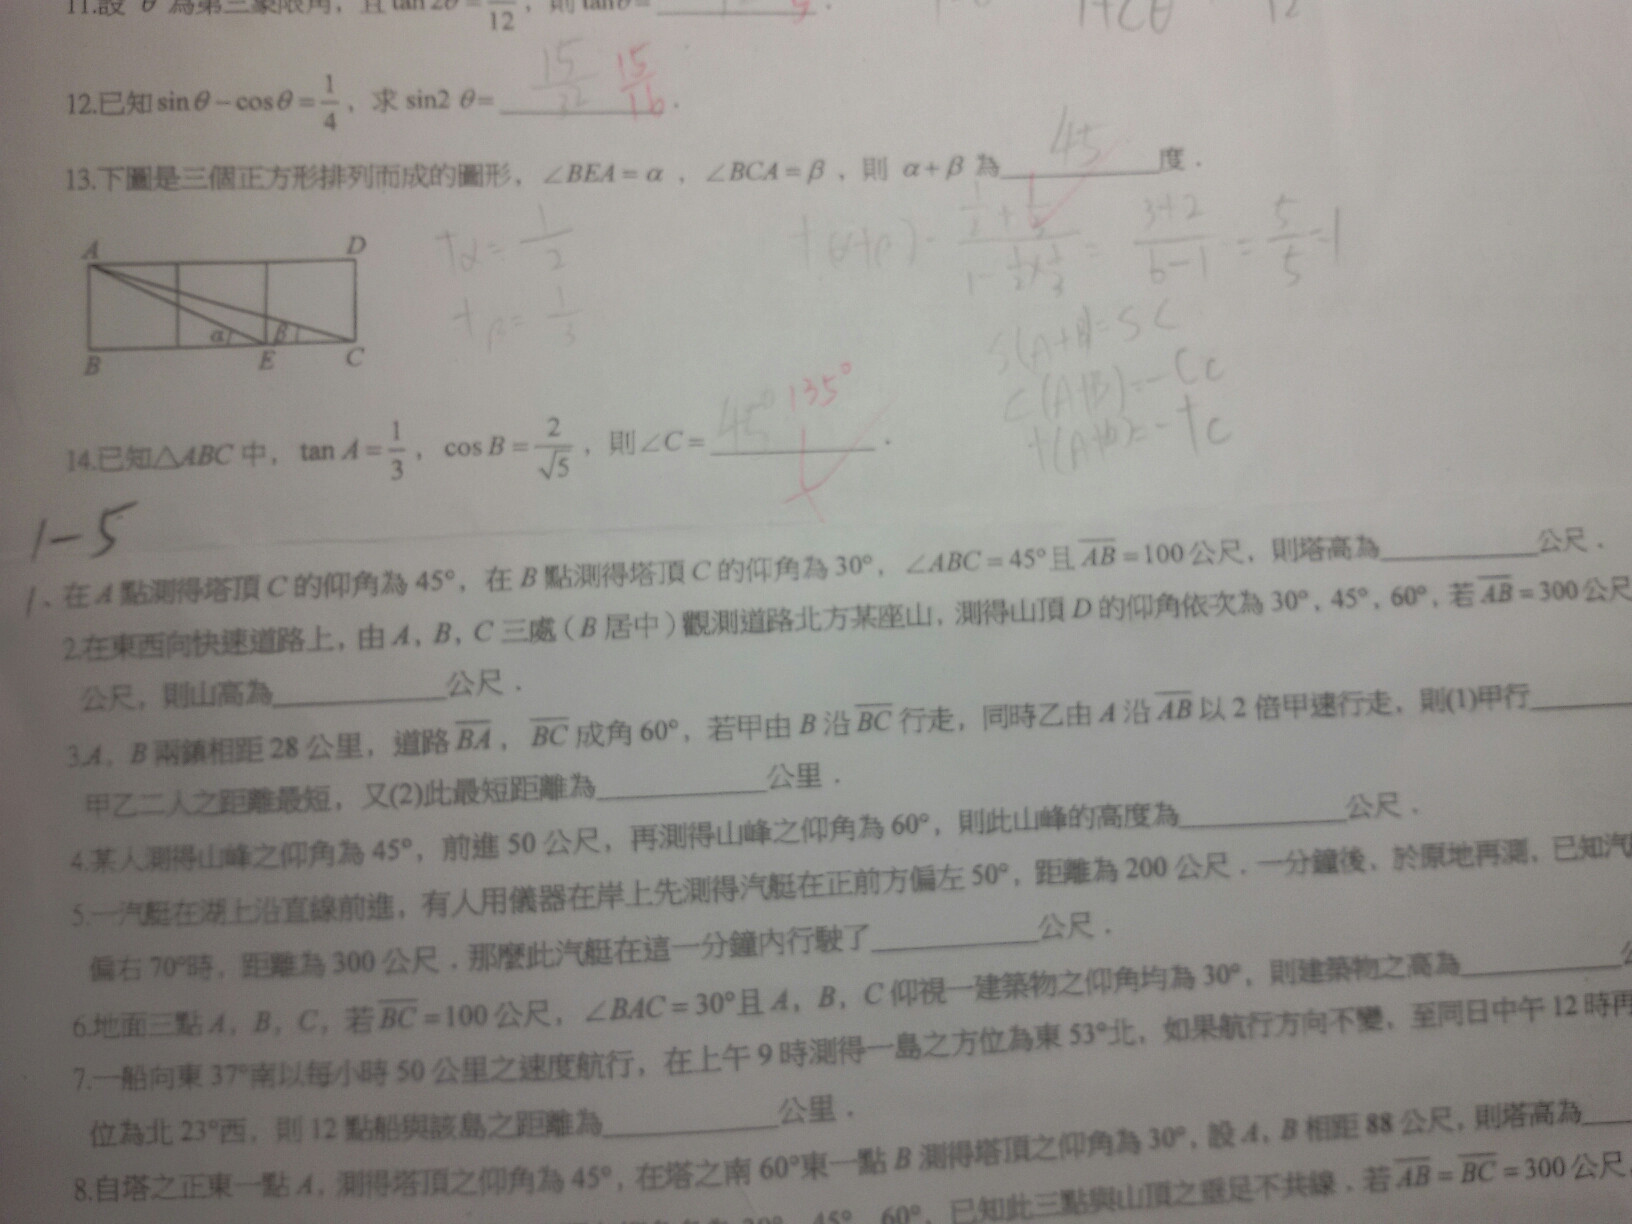 11.設 θ 為第三象限角，且 tan2θ= /12，則 tanθ=
1+Cθ 12
12.已知 sinθ－cosθ=1/4，求 sin2 θ= 15/32 15/16 .
13.下圖是三個正方形排列而成的圖形，∠BEA=α，∠BCA=β，則 α+β 為 45 度．
A D
α β
B E C
tα= 1/2
tβ= 1/3
t(α+β)= (1/2+1/3)/(1-1/2×1/3) = (3+2)/(6-1) = 5/5 =1
S(A+B)=SC
C(A+B)=-Cc
t(A+B)=-tc
14.已知△ABC 中，tan A=1/3，cos B=2/√5，則∠C= 45° 135° ．
1-5
1、在 A 點測得塔頂 C 的仰角為 45°，在 B 點測得塔頂 C 的仰角為 30°，∠ABC=45°且 AB=100 公尺，則塔高為 公尺．
2.在東西向快速道路上，由 A，B，C 三處（B 居中）觀測道路北方某座山，測得山頂 D 的仰角依次為 30°，45°，60°，若 AB=300 公尺
公尺，則山高為 公尺．
3.A，B 兩鎮相距 28 公里，道路 BA，BC 成角 60°，若甲由 B 沿 BC 行走，同時乙由 A 沿 AB 以 2 倍甲速行走，則(1)甲行
甲乙二人之距離最短，又(2)此最短距離為 公里．
4.某人測得山峰之仰角為 45°，前進 50 公尺，再測得山峰之仰角為 60°，則此山峰的高度為 公尺．
5.一汽艇在湖上沿直線前進，有人用儀器在岸上先測得汽艇在正前方偏左 50°，距離為 200 公尺．一分鐘後，於原地再測，已知汽
偏右 70°時，距離為 300 公尺．那麼此汽艇在這一分鐘內行駛了 公尺．
6.地面三點 A，B，C，若 BC=100 公尺，∠BAC=30°且 A，B，C 仰視一建築物之仰角均為 30°，則建築物之高為
7.一船向東 37°南以每小時 50 公里之速度航行，在上午 9 時測得一島之方位為東 53°北，如果航行方向不變，至同日中午 12 時再
位為北 23°西，則 12 點船與該島之距離為 公里．
8.自塔之正東一點 A，測得塔頂之仰角為 45°，在塔之南 60°東一點 B 測得塔頂之仰角為 30°，設 A，B 相距 88 公尺，則塔高為
30°，45°，60°，已知此三點與山頂之垂足不共線．若 AB=BC=300 公尺，